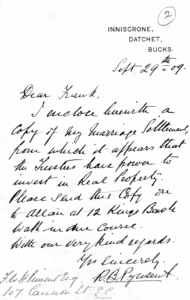 2
INNISCRONE,
DATCHET,
BUCKS.
Sept 29th 09.
Dear Frank.
I enclose herewith a
copy of my marriage settlement,
from which it appears that
the Trustees have power to
invest in Real Property.
Please send this copy on
to Allan at 12 Kings Bench
Walk in due course.
With our very kind regards.
Yrs sincerely.
R. B. Pynsent
Esq
107 Cannon St E.C.